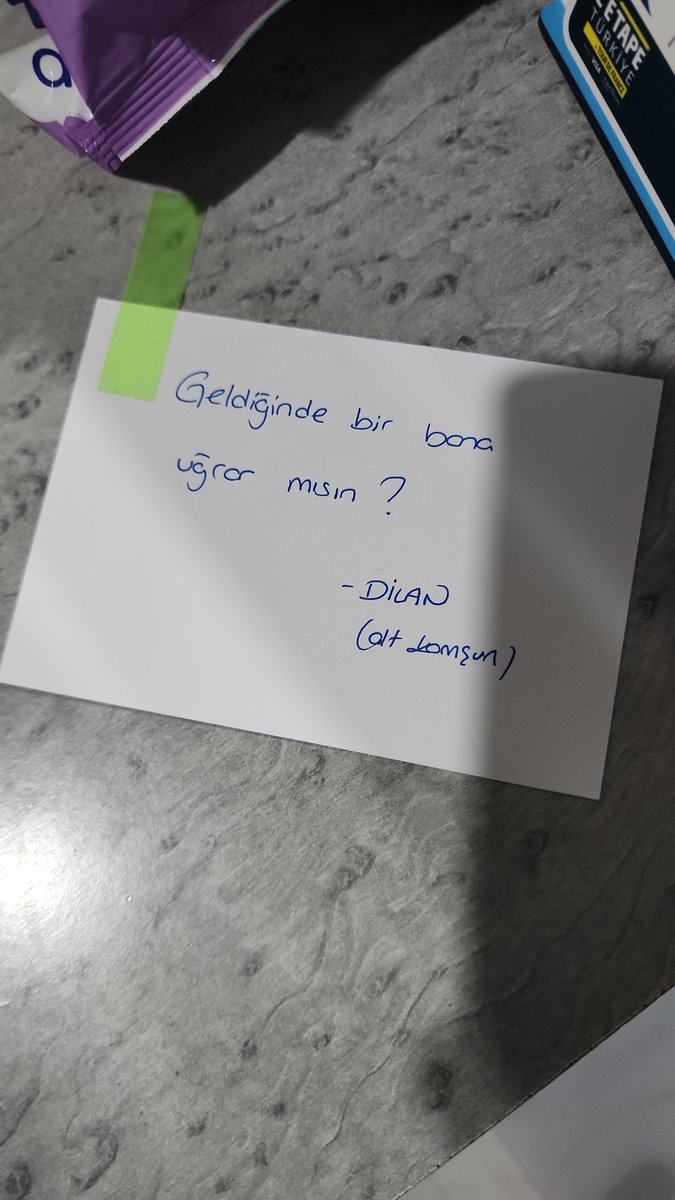 L'ETAPE
TÜRKİYE
VISA
Geldiğinde bir bana
uğrar mısın ?
- DİLAN
(alt komşun)